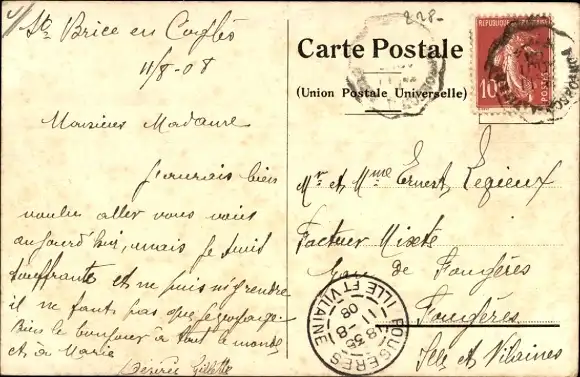 St Brice en Coglès
11/8-08
Monsieur Madame
J'aurais bien
voulu aller vous voir
aujourd'hui, mais je suis
souffrante et ne puis m'y rendre
il ne faut pas que je voyage.
Bien le bonjour à tout le monde
et à Marie
Désirée Gillette
228-
Carte Postale
(Union Postale Universelle)
REPUBLIQUE
10
POSTES
Mr et Mme Ernest Legieux
Facteur Mixte
de Fougères
Fougères
Ille et Vilaine
FOUGERES
ILLE ET VILAINE
18 35
11 -8
08